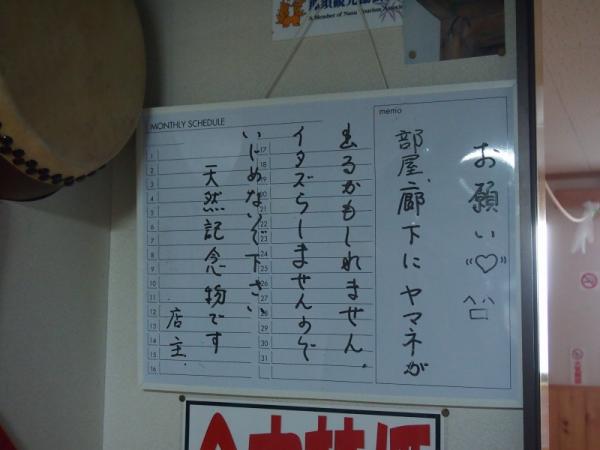 那須観光協会
A Member of Nasu Tourism Association
MONTHLY SCHEDULE
memo
お願い"♡"^^
部屋、廊下にヤマネが
出るかもしれません。
イタズらしませんのぞ
いじめないで下さい
天然記念物です
店主
1
2
3
4
5
6
7
8
9
10
11
12
13
14
15
16
17
18
19
20
21
22
23
24
25
26
27
28
29
30
31